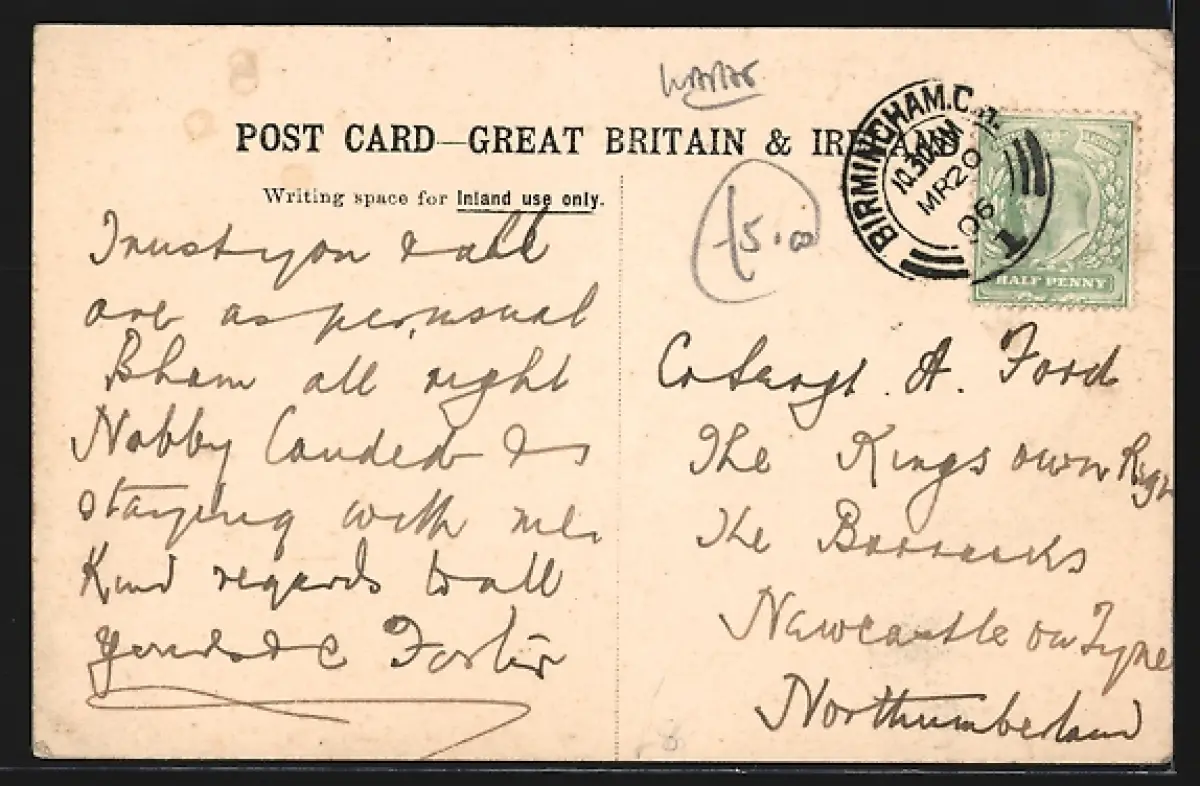 POST CARD—GREAT BRITAIN & IRELAND
Writing space for Inland use only.
BIRMINGHAM. C
10.30 AM
MR 20
06
1
HALF PENNY
15.00
I trust you & all
are as per usual
Bham all right
Nobby Landed & is
staying with me
Kind regards to all
Yours &c Foster
Co Sergt. A. Ford
The Kings own Regt
The Barracks
Newcastle on Tyne
Northumberland